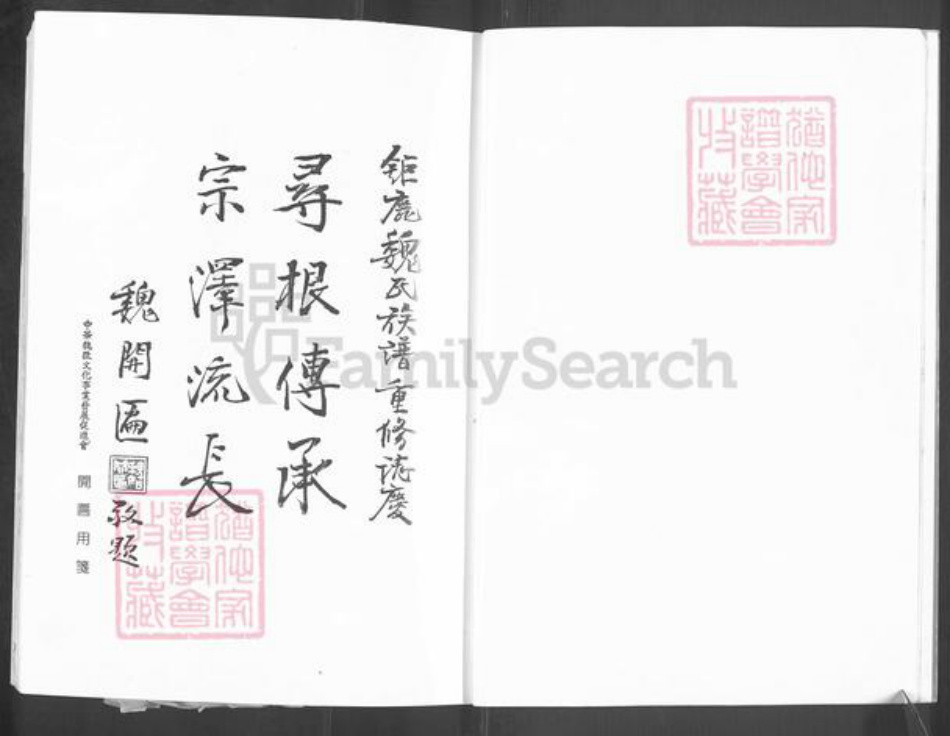 鉅鹿魏氏族譜重修誌慶
尋根傳承
宗澤流長
魏開匾
敬題
中華魏徵文化事業發展促進會
開匾用箋
猶他家
譜學會
收藏
猶他家
譜學會
收藏
FamilySearch